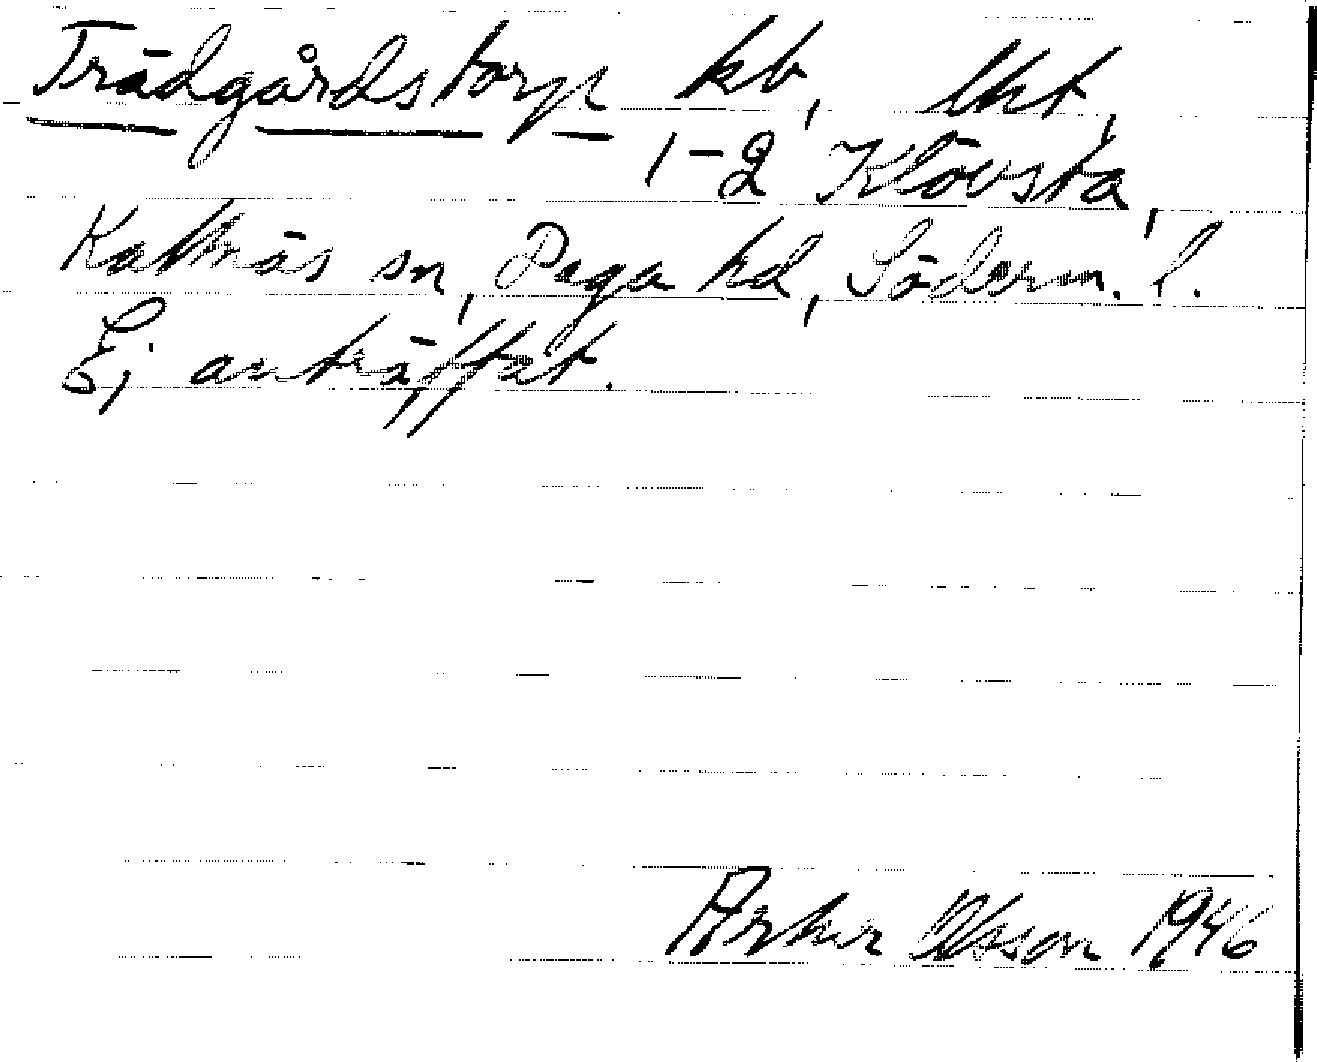 Trädgårdstorp kb, lht,
1-2 Klövsta,
Kattnäs sn, Daga hd, Söderm. l.
Ej anträffat.
Artur Olsson 1946